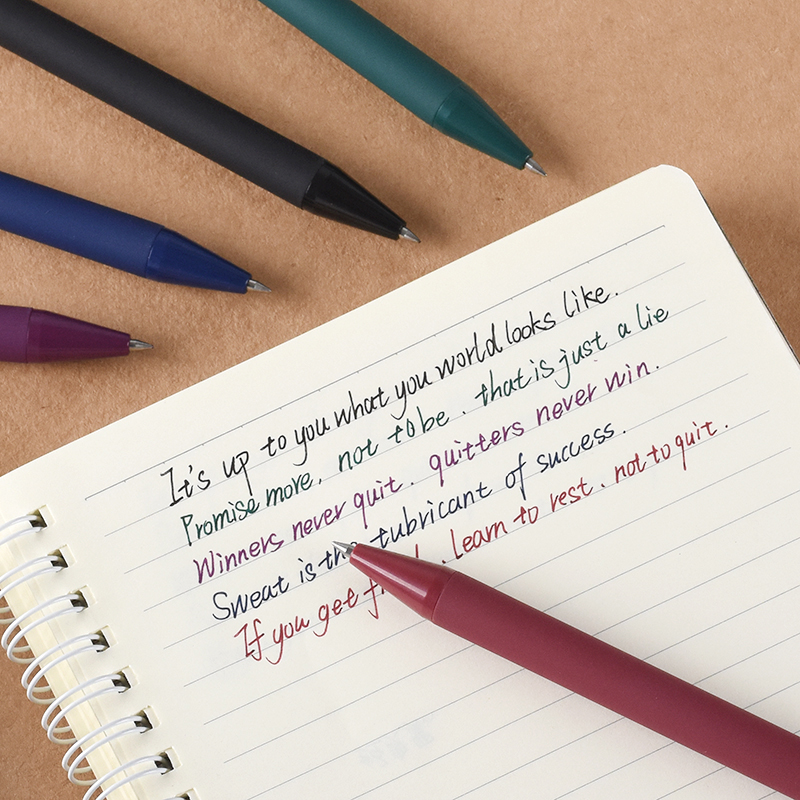 It's up to you what you world looks like.
Promise more, not to be. that is just a lie
Winners never quit. quitters never win.
Sweat is the tubricant of success.
If you get . Learn to rest. not to quit.